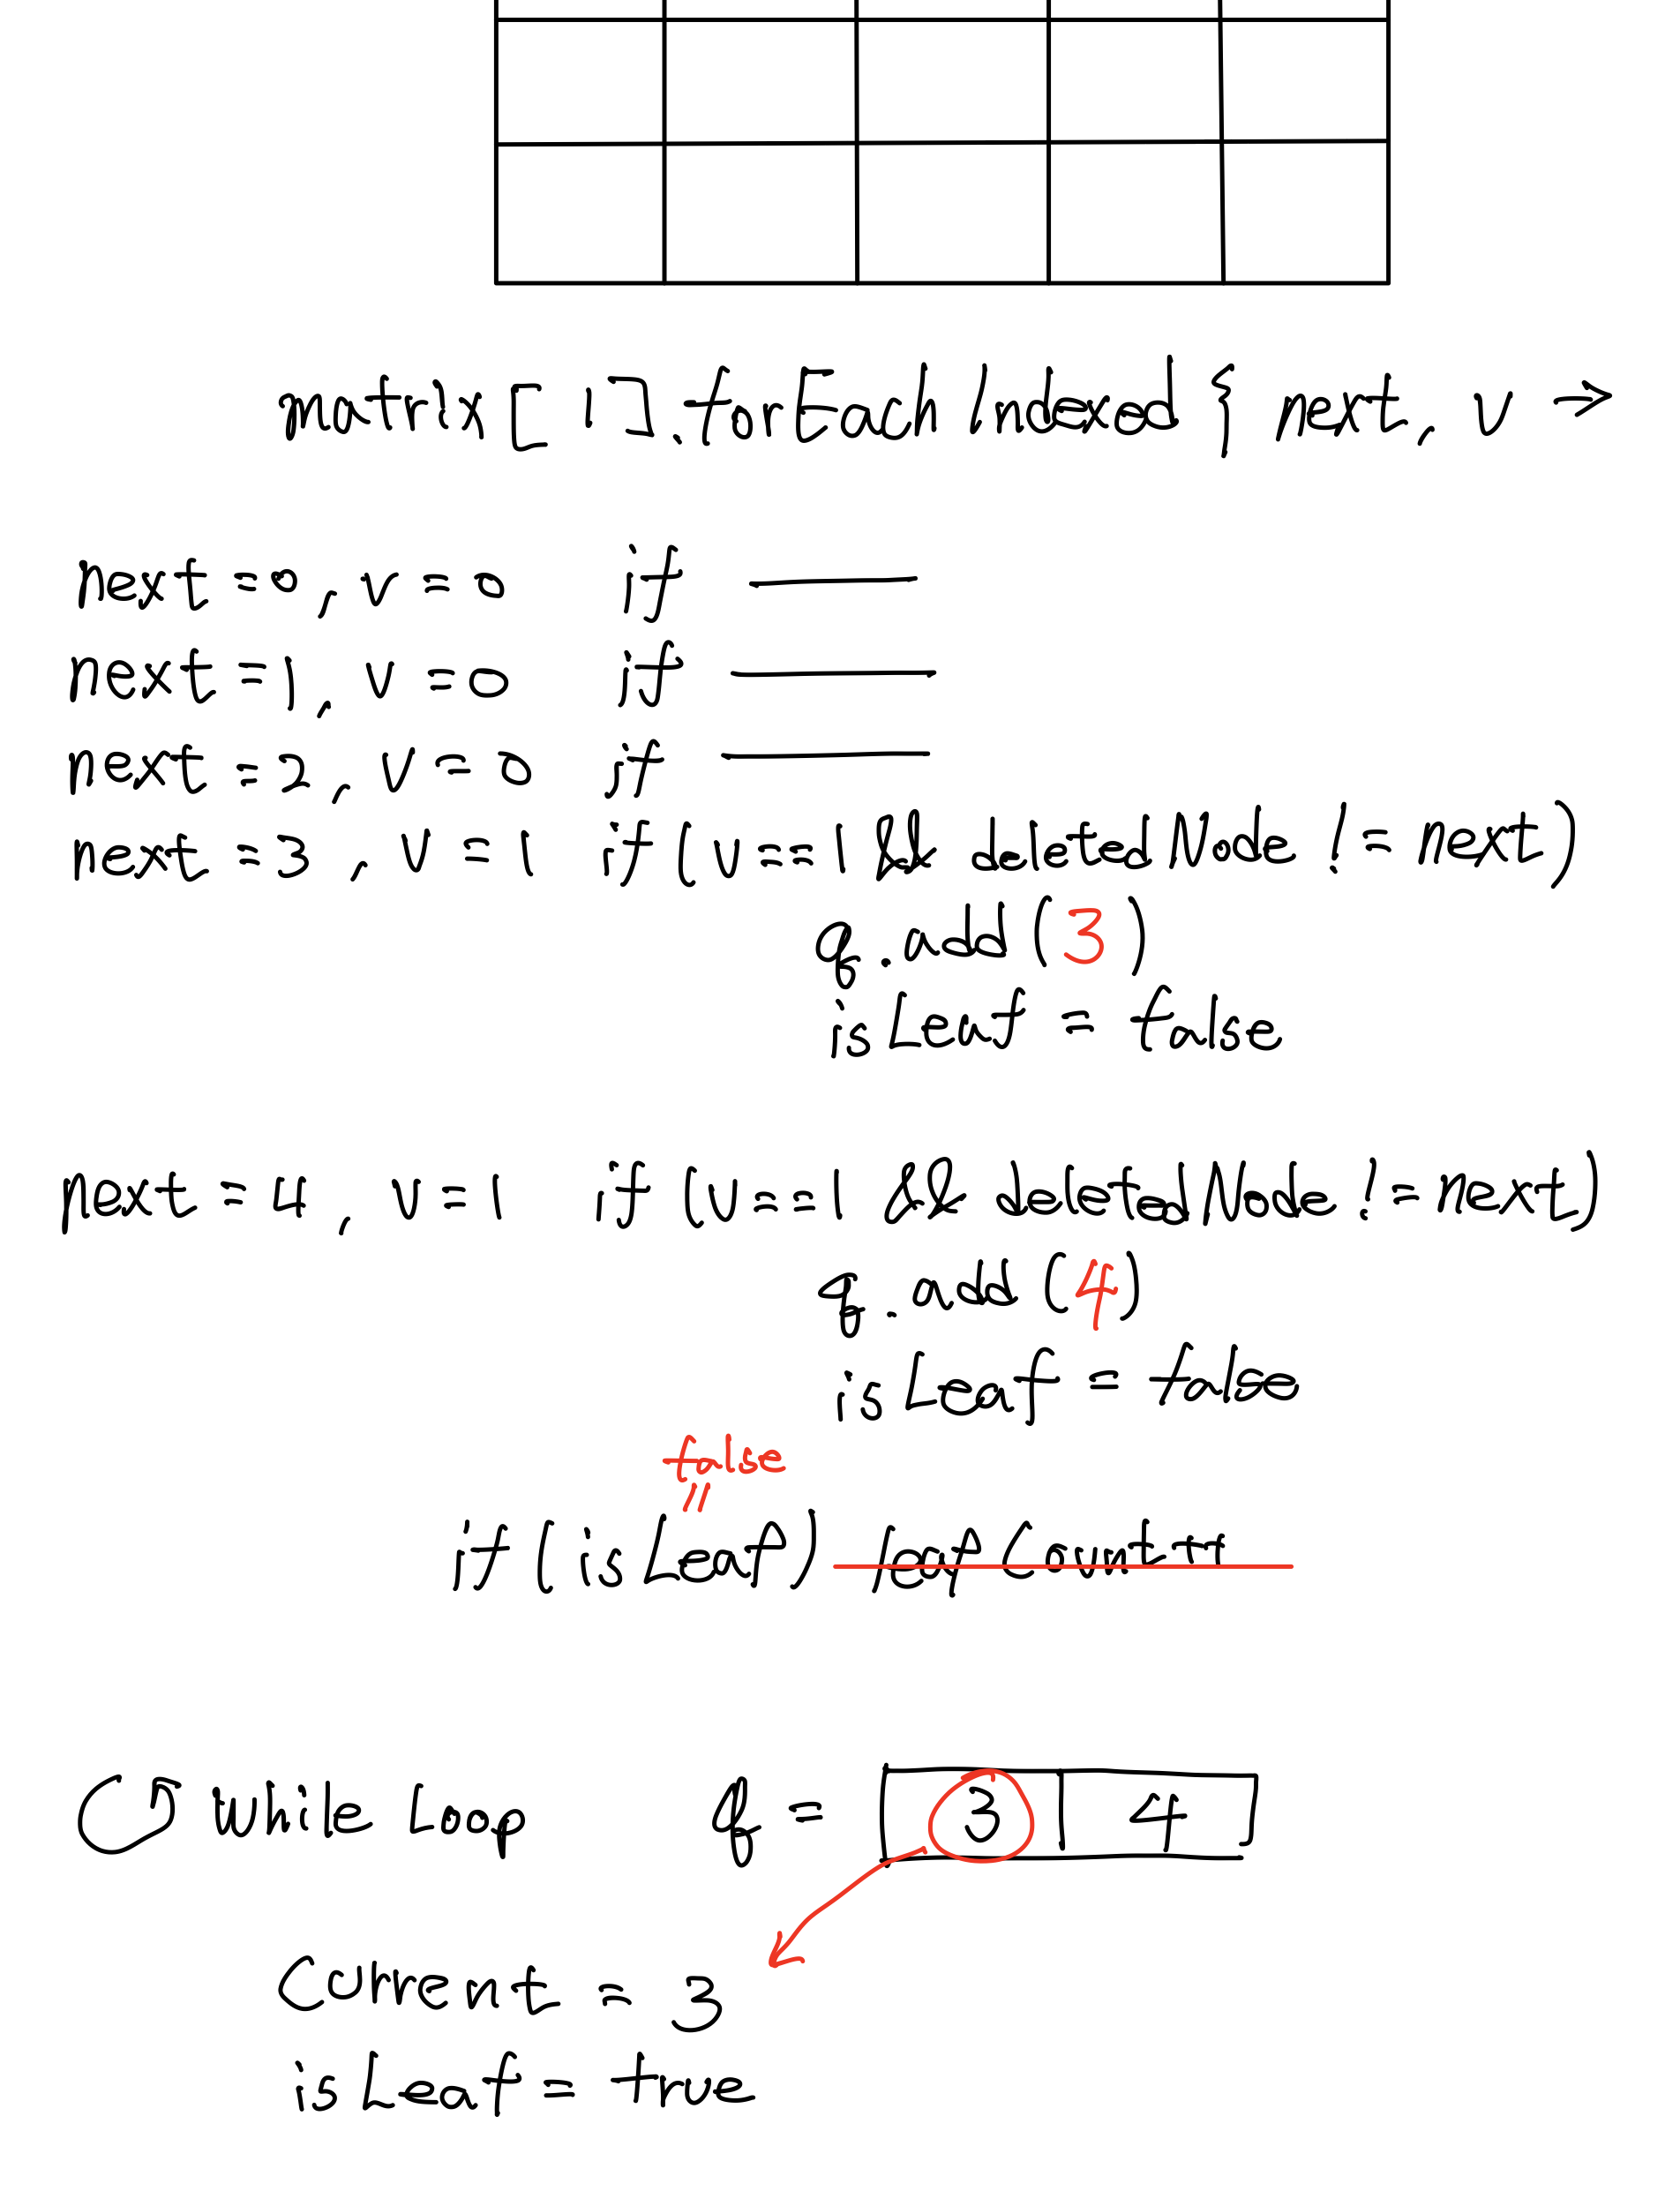 matrix[ i ].forEachIndexed { next, v ->
next = 0, v = 0 if
next = 1, v = 0 if
next = 2, v = 0 if
next = 3, v = 1 if (v == 1 && deletedNode != next)
q.add(3)
isLeaf = false
next = 4, v = 1 if (v == 1 && deletedNode != next)
q.add(4)
isLeaf = false
false
if (isLeaf) leafCount++
While Loop q = 3 4
Current = 3
isLeaf = true